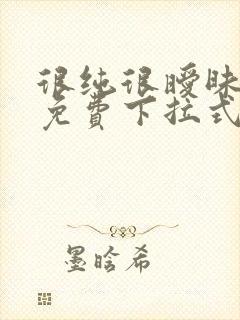 很纯很暧昧
免费下拉式
墨晗希